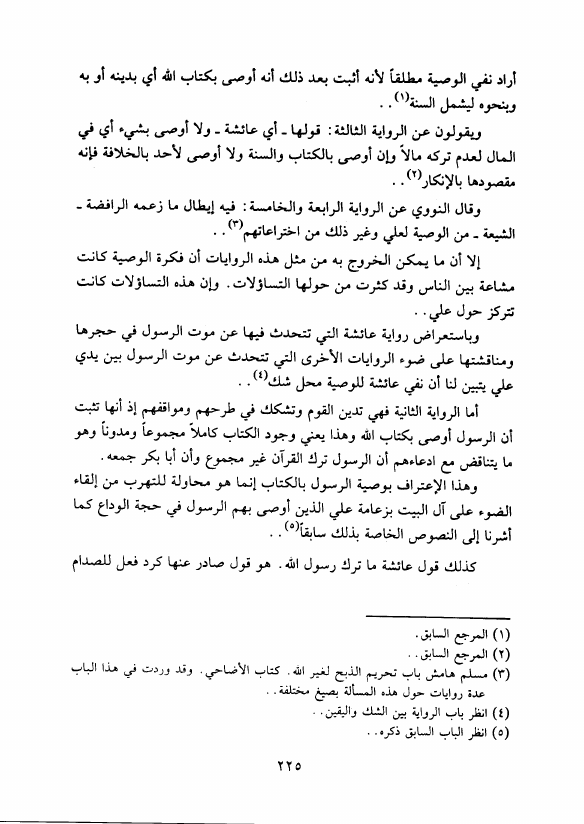 أراد نفي الوصية مطلقاً لأنه أثبت بعد ذلك أنه أوصى بكتاب الله أي بدينه أو به
وبنحوه ليشمل السنة(١) . .
ويقولون عن الرواية الثالثة: قولها ـ أي عائشة ـ ولا أوصى بشيء أي في
المال لعدم تركه مالاً وإن أوصى بالكتاب والسنة ولا أوصى لأحد بالخلافة فإنه
مقصودها بالإنكار(٢) . .
وقال النووي عن الرواية الرابعة والخامسة: فيه إبطال ما زعمه الرافضة ـ
الشيعة ـ من الوصية لعلي وغير ذلك من اختراعاتهم(٣) . .
إلا أن ما يمكن الخروج به من مثل هذه الروايات أن فكرة الوصية كانت
مشاعة بين الناس وقد كثرت من حولها التساؤلات. وإن هذه التساؤلات كانت
تتركز حول علي . .
وباستعراض رواية عائشة التي تتحدث فيها عن موت الرسول في حجرها
ومناقشتها على ضوء الروايات الأخرى التي تتحدث عن موت الرسول بين يدي
علي يتبين لنا أن نفي عائشة للوصية محل شك(٤) . .
أما الرواية الثانية فهي تدين القوم وتشكك في طرحهم ومواقفهم إذ أنها تثبت
أن الرسول أوصى بكتاب الله وهذا يعني وجود الكتاب كاملاً مجموعاً ومدوناً وهو
ما يتناقض مع ادعاءهم أن الرسول ترك القرآن غير مجموع وأن أبا بكر جمعه.
وهذا الإعتراف بوصية الرسول بالكتاب إنما هو محاولة للتهرب من إلقاء
الضوء على آل البيت بزعامة علي الذين أوصى بهم الرسول في حجة الوداع كما
أشرنا إلى النصوص الخاصة بذلك سابقاً(٥) . .
كذلك قول عائشة ما ترك رسول الله. هو قول صادر عنها كرد فعل للصدام
(١) المرجع السابق.
(٢) المرجع السابق. .
(٣) مسلم هامش باب تحريم الذبح لغير الله. كتاب الأضاحي. وقد وردت في هذا الباب
عدة روايات حول هذه المسألة بصيغ مختلفة. .
(٤) انظر باب الرواية بين الشك واليقين. .
(٥) انظر الباب السابق ذكره. .
٢٢٥